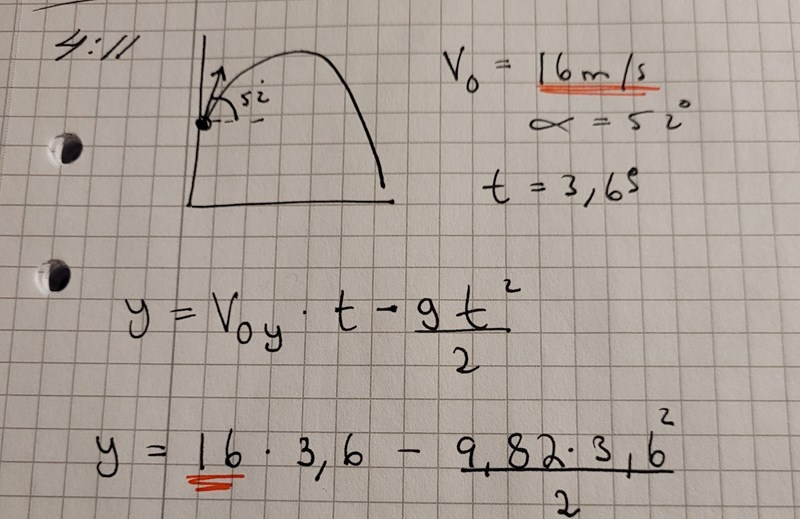 4:11
52°
V₀ = 16 m/s
α = 52°
t = 3,6s
y = V₀y · t - gt²/2
y = 16 · 3,6 - 9,82·3,6²/2